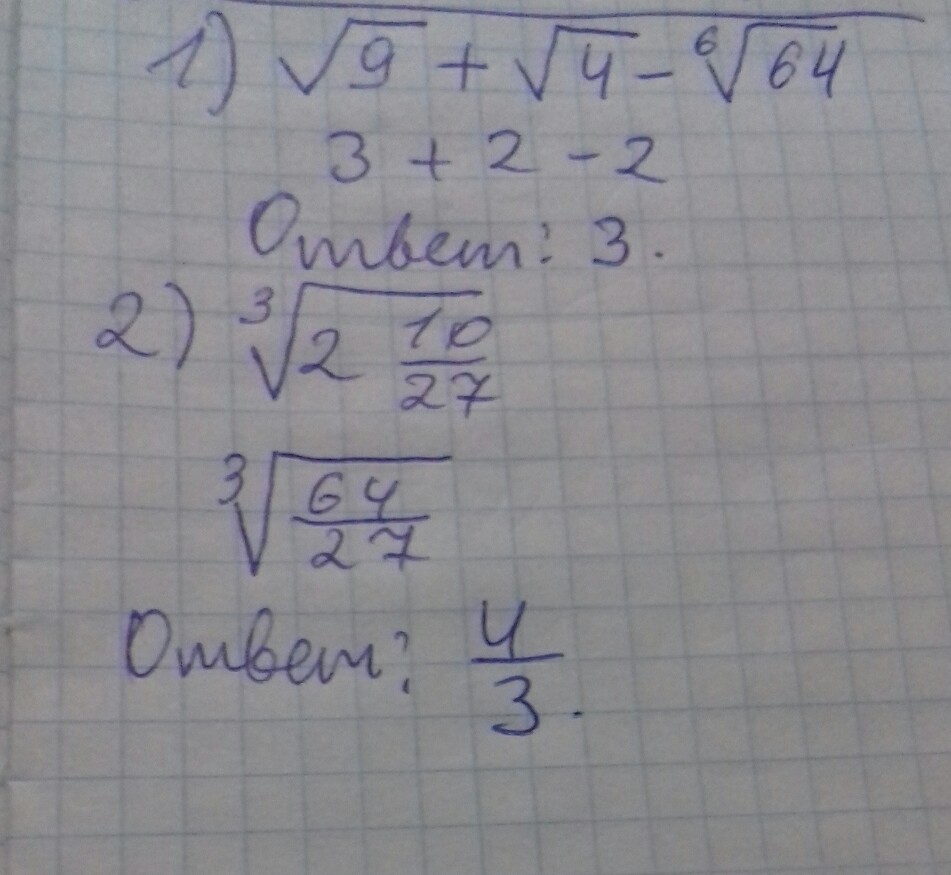 1) √9 + √4 - ⁶√64
3 + 2 - 2
Ответ: 3.
2) ³√2 10/27
³√64/27
Ответ: 4/3.